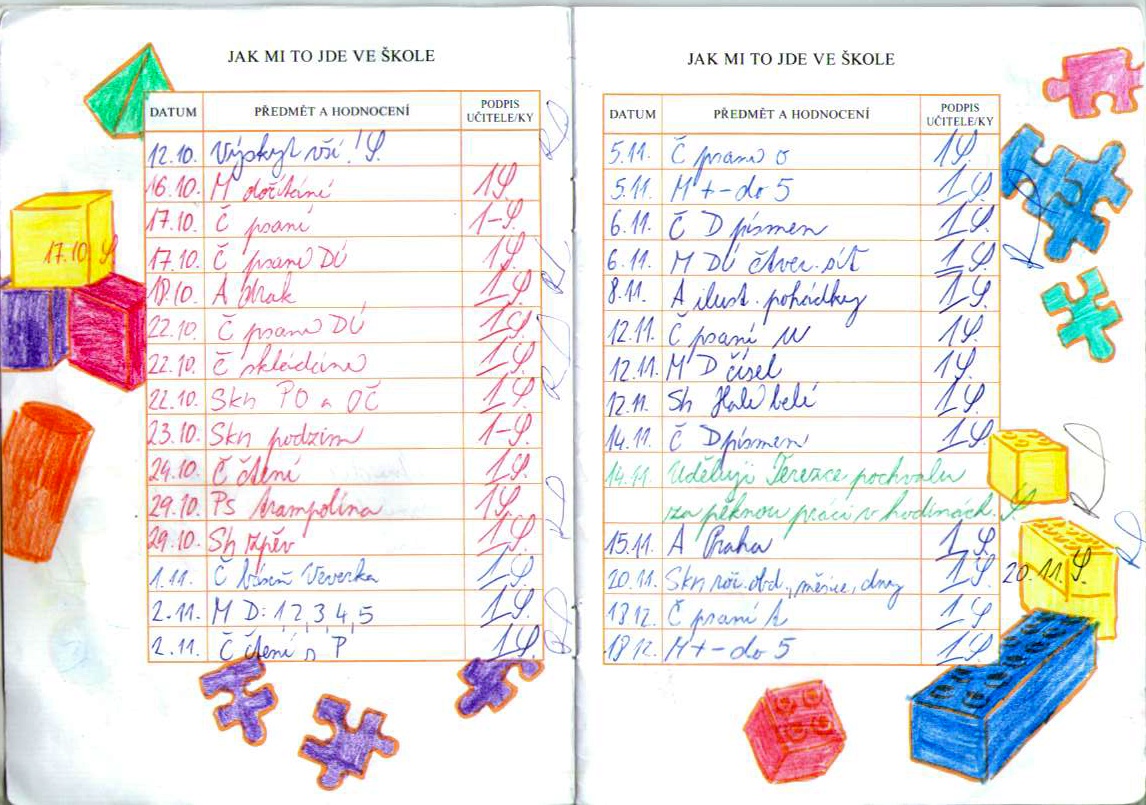 JAK MI TO JDE VE ŠKOLE
DATUM PŘEDMĚT A HODNOCENÍ PODPIS UČITELE/KY
12.10. Výskyt vší!
16.10. M dočítání 1
17.10. Č psaní 1-
17.10. Č psaní DÚ 1
18.10. A drak 1
22.10. Č psaní DÚ 1
22.10. Č skládáme 1
22.10. Skn PO a OČ 1
23.10. Skn podzim 1-
24.10. Č čtení 1
29.10. Ps trampolína 1
29.10. Sh zpěv 1
1.11. Č báseň Veverka 1
2.11. M D: 1, 2, 3, 4, 5 1
2.11. Č čtení s P 1
17.10.
JAK MI TO JDE VE ŠKOLE
DATUM PŘEDMĚT A HODNOCENÍ PODPIS UČITELE/KY
5.11. Č psaní o 1
5.11. M + - do 5 1
6.11. Č D písmen 1
6.11. M DÚ čtver. síť 1
8.11. A ilust. pohádky 1
12.11. Č psaní 1
12.11. M D čísel 1
12.11. Sh Halí belí 1
14.11. Č D písmen 1
14.11. Uděluji Terezce pochvalu
za pěknou práci v hodinách.
15.11. A Praha 1
20.11. Skn roč. obd., měsíce, dny 1 20.11.
18.12. Č psaní 1
18.12. M + - do 5 1